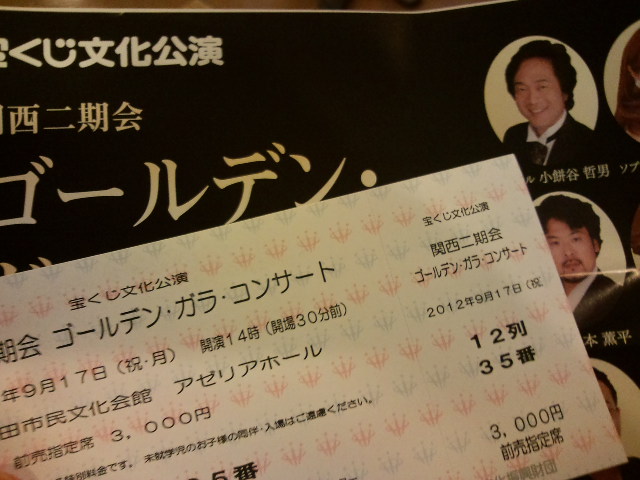 宝くじ文化公演
関西二期会
ゴールデン・
小餅谷 哲男
ソプ
本 薫平
宝くじ文化公演
期会 ゴールデン・ガラ・コンサート
年9月17日(祝・月) 開演14時(開場30分前)
田市民文化会館 アゼリアホール
前売指定席 3,000円
特別料金です。未就学児のお子様の同伴・入場はご遠慮ください。
35番
宝くじ文化公演
関西二期会
ゴールデン・ガラ・コンサート
2012年9月17日(祝
12列
35番
3,000円
前売指定席
化振興財団